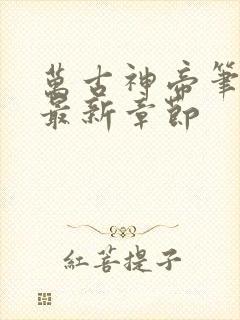 萬古神帝筆
最新章節
紅菩提子